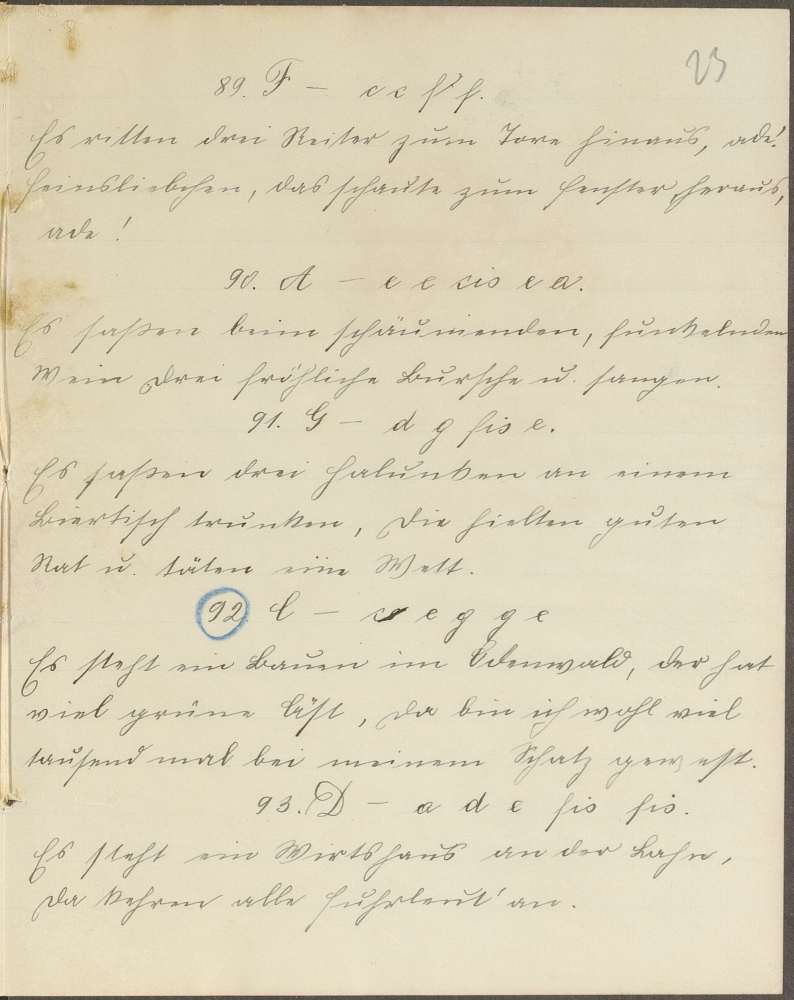 23
89. F — c c f f.
Es ritten drei Reiter zum Tore hinaus, ade!
Feinsliebchen, das schaute zum Fenster heraus,
ade!
90. A — e e cis e a.
Es saßen beim schäumenden, funkelnden
Wein drei fröhliche Bursche u. sangen.
91. G — d g fis e.
Es saßen drei Halunken an einem
Biertisch trunken, die hielten guten
Rat u. täten eine Wett.
92. C — c e g g e
Es steht ein Bauen im Odenwald, der hat
viel grüne Äst, da bin ich wohl viel
tausend mal bei meinem Schatz gewest.
93. D — a d e fis fis.
Es steht ein Wirtshaus an der Lahn,
da kehren alle Fuhrleut' an.